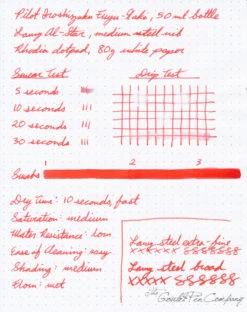 Pilot Iroshizuku Fuyu-Gaki, 50 ml bottle
Lamy Al-Star, medium nib
Rhodia dotpad, 80g white paper
Smear Test
Drip Test
5 seconds
10 seconds
20 seconds
30 seconds
1 2 3
Swabs
Dry Time: 10 seconds, fast
Saturation: medium
Water Resistance: low
Ease of Cleaning: easy
Shading: medium
Flow: wet
Lamy steel extra-fine
xxxxxxx
Lamy steel broad
xxxxx
The Goulet Pen Company